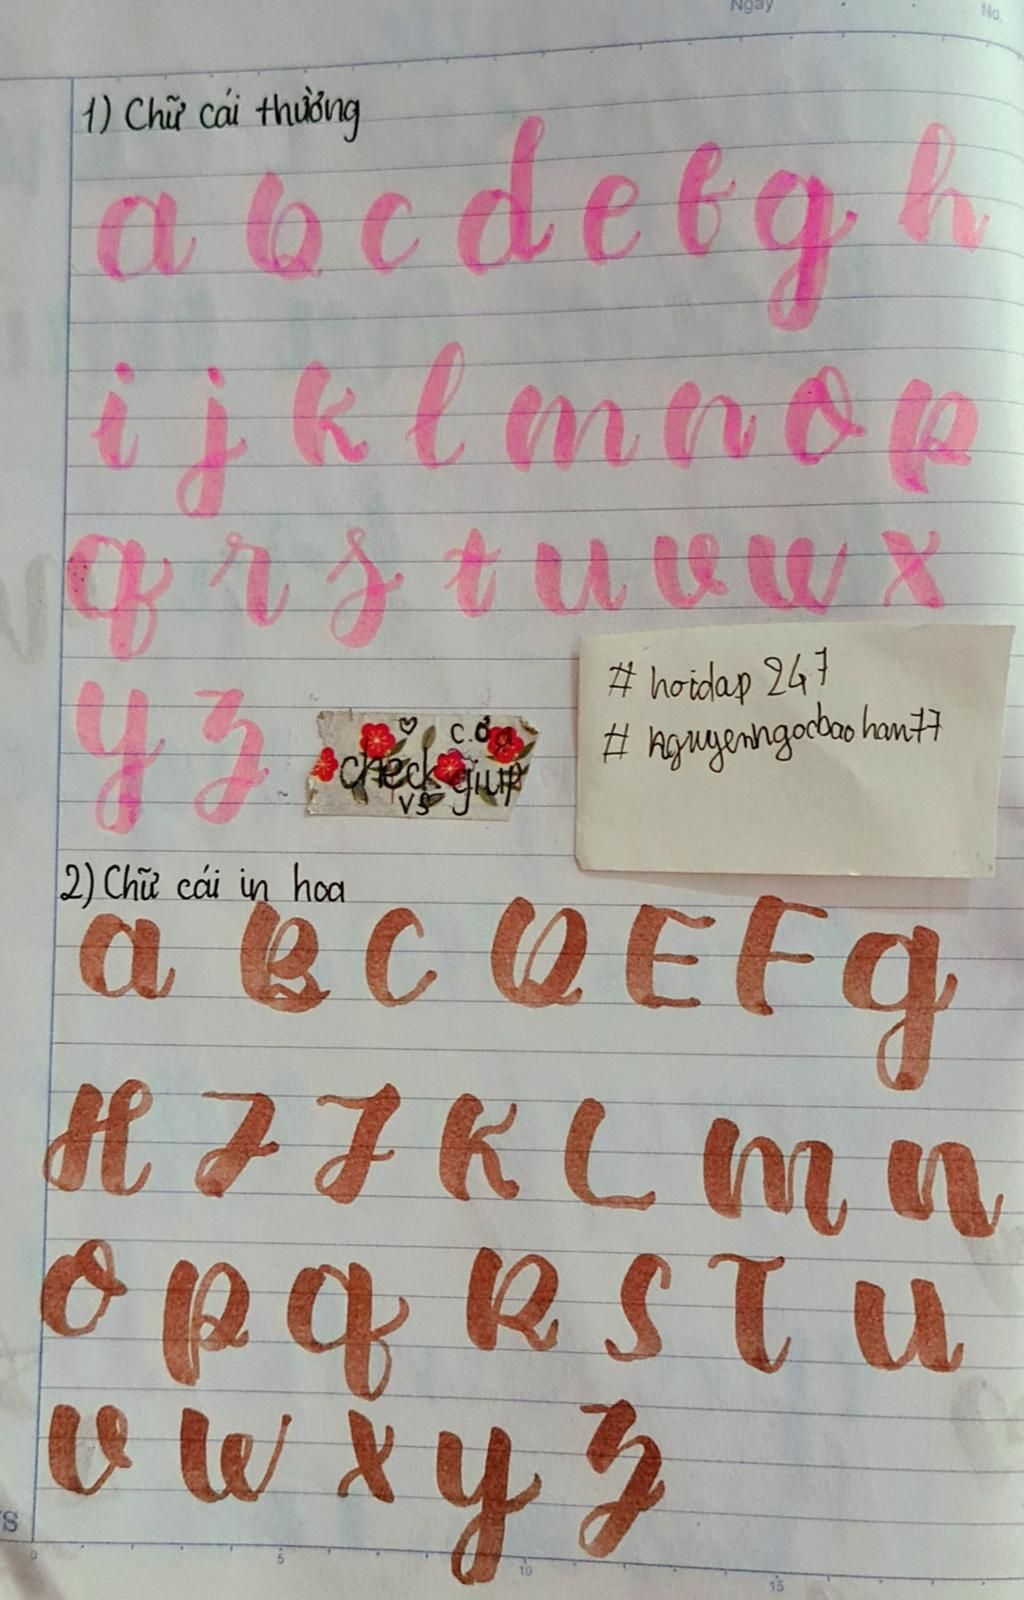 Ngày
No.
1) Chữ cái thường
a b c d e f g h
i j k l m n o p
q r s t u v w x
y z
c.ơn
check giúp
vs
# hoidap 247
# nguyenngocbaohan77
2) Chữ cái in hoa
a B C D E F g
H I J K L m n
o p q R S T u
v w x y z
0 5 10 15